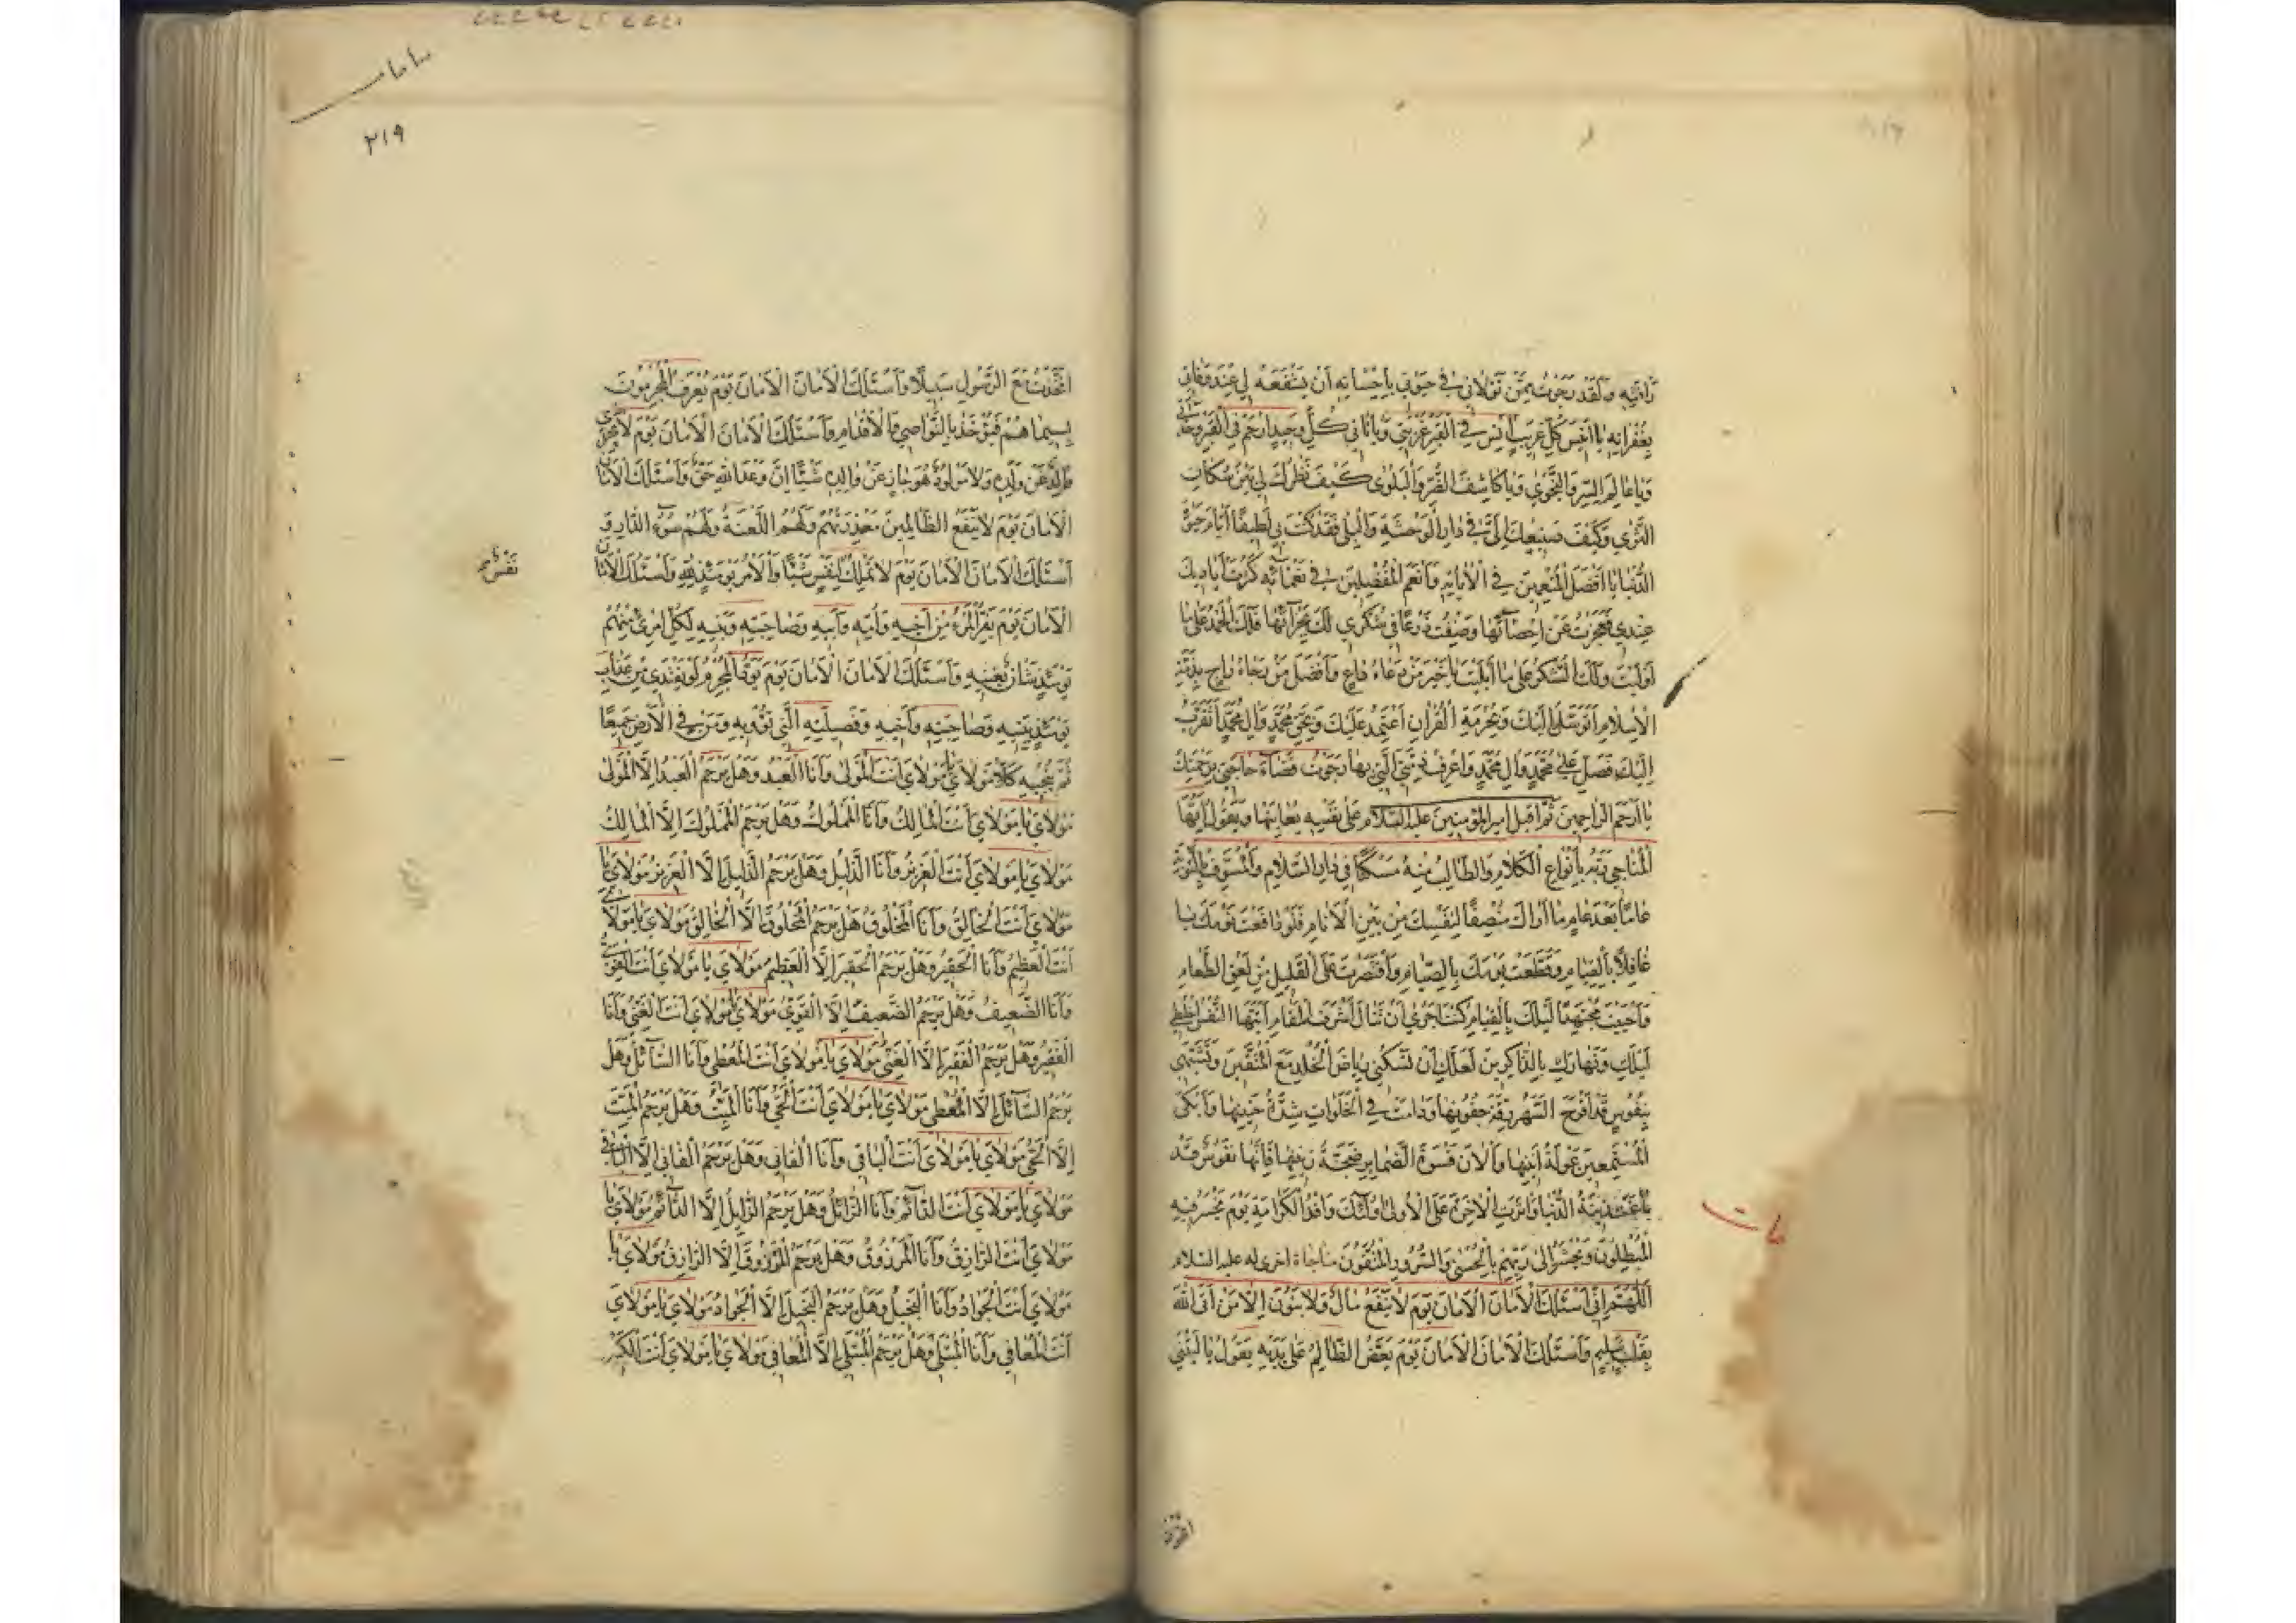 رَأفَتِهِ وَلَقَدْ رَجَوْتُ مِمَّنْ تَوَلَّانِي فِي حَيٰوتِي بِاِحْسَانِهِ اَنْ يَشْفَعَهُ لِي عِنْدَ وَفَاتِي
بِغُفْرَانِهِ يَا اَنِيسَ كُلِّ غَرِيبٍ اٰنِسْ فِي الْقَبْرِ غُرْبَتِي وَيَا ثَانِيَ كُلِّ وَحِيدٍ اِرْحَمْ فِي الْقَبْرِ وَحْدَتِي
وَيَا عَالِمَ السِّرِّ وَالنَّجْوٰي وَيَا كَاشِفَ الضُّرِّ وَالْبَلْوٰي كَيْفَ نَظَرُكَ لِي بَيْنَ سُكَّانِ
الثَّرٰي وَكَيْفَ صَنِيعُكَ اِلَيَّ فِي دَارِ الْوَحْشَةِ وَالْبِلٰي فَقَدْ كُنْتَ بِي لَطِيفًا اَيَّامَ حَيٰوةِ
الدُّنْيَا يَا اَفْضَلَ الْمُنْعِمِينَ فِي اٰلَائِهِ وَاَنْعَمَ الْمُفْضِلِينَ فِي نَعْمَائِهِ كَثُرَتْ اَيَادِيكَ
عِنْدِي فَعَجَزْتُ عَنْ اِحْصَائِهَا وَضِقْتُ ذَرْعًا فِي شُكْرِي لَكَ بِجَزَائِهَا فَلَكَ الْحَمْدُ عَلٰي مَا
اَوْلَيْتَ وَلَكَ الشُّكْرُ عَلٰي مَا اَبْلَيْتَ يَا خَيْرَ مَنْ دَعَاهُ دَاعٍ وَاَفْضَلَ مَنْ رَجَاهُ رَاجٍ بِذِمَّةِ
الْاِسْلَامِ اَتَوَسَّلُ اِلَيْكَ وَبِحُرْمَةِ الْقُرْاٰنِ اَعْتَمِدُ عَلَيْكَ وَبِحَقِّ مُحَمَّدٍ وَاٰلِ مُحَمَّدٍ اَتَقَرَّبُ
اِلَيْكَ فَصَلِّ عَلٰي مُحَمَّدٍ وَاٰلِ مُحَمَّدٍ وَاعْرِفْ ذِمَّتِيَ الَّتِي بِهَا رَجَوْتُ قَضَاءَ حَاجَتِي بِرَحْمَتِكَ
يَا اَرْحَمَ الرَّاحِمِينَ ثُمَّ اَقْبَلَ اَمِيرُ الْمُؤْمِنِينَ عَلَيْهِ السَّلَامُ عَلٰي نَفْسِهِ يُعَاتِبُهَا وَيَقُولُ اَيُّهَا
الْمُنَاجِي رَبَّهُ بِاَنْوَاعِ الْكَلَامِ وَالطَّالِبُ مِنْهُ مَسْكَنًا فِي دَارِ السَّلَامِ وَالْمُسَوِّفُ بِالتَّوْبَةِ
عَامًا بَعْدَ عَامٍ مَا اَرَاكَ مُنْصِفًا لِنَفْسِكَ مِنْ بَيْنِ الْاَنَامِ فَلَوْ دَافَعْتَ نَوْمَكَ يَا
غَافِلًا بِالْقِيَامِ وَقَطَعْتَ يَوْمَكَ بِالصِّيَامِ وَاقْتَصَرْتَ عَلَي الْقَلِيلِ مِنْ لَعْقِ الطَّعَامِ
وَاَحْيَيْتَ مُجْتَهِدًا لَيْلَكَ بِالْقِيَامِ كُنْتَ اَحْرٰي اَنْ تَنَالَ اَشْرَفَ الْمَقَامِ اَيَّتُهَا النَّفْسُ اخْلِطِي
لَيْلَكِ وَنَهَارَكِ بِالذَّاكِرِينَ لَعَلَّكِ اَنْ تَسْكُنِي رِيَاضَ الْخُلْدِ مَعَ الْمُتَّقِينَ وَتَشَبَّهِي
بِنُفُوسٍ قَدْ اَقْرَحَ السَّهَرُ رِقَّةَ جُفُونِهَا وَدَامَتْ فِي الْخَلَوَاتِ شِدَّةُ حَنِينِهَا وَاَبْكَي
الْمُسْتَمِعِينَ عَوْلَةُ اَنِينِهَا وَاَلَانَ قَسْوَةَ الضَّمَايِرِ ضَجَّةُ رَنِينِهَا فَاِنَّهَا نُفُوسٌ قَدْ
بَاعَتْ زِينَةَ الدُّنْيَا وَاٰثَرَتِ الْاٰخِرَةَ عَلَي الْاُولٰي اُولٰئِكَ وَفْدُ الْكَرَامَةِ يَوْمَ يَخْسَرُ فِيهِ
الْمُبْطِلُونَ وَيُحْشَرُ اِلٰي رَبِّهِمْ بِالْحُسْنٰي وَالسُّرُورِ الْمُتَّقُونَ مناجاة اخري له عليه السلام
اَللّٰهُمَّ اِنِّي اَسْئَلُكَ الْاَمَانَ الْاَمَانَ يَوْمَ لَا يَنْفَعُ مَالٌ وَلَا بَنُونَ اِلَّا مَنْ اَتَي اللّٰهَ
بِقَلْبٍ سَلِيمٍ وَاَسْئَلُكَ الْاَمَانَ الْاَمَانَ يَوْمَ يَعَضُّ الظَّالِمُ عَلٰي يَدَيْهِ يَقُولُ يَا لَيْتَنِي
مات
٢١٩
اتَّخَذْتُ مَعَ الرَّسُولِ سَبِيلًا وَاَسْئَلُكَ الْاَمَانَ الْاَمَانَ يَوْمَ يُعْرَفُ الْمُجْرِمُونَ
بِسِيمَاهُمْ فَيُؤْخَذُ بِالنَّوَاصِي وَالْاَقْدَامِ وَاَسْئَلُكَ الْاَمَانَ الْاَمَانَ يَوْمَ لَا يَجْزِي
وَالِدٌ عَنْ وَلَدِهِ وَلَا مَوْلُودٌ هُوَ جَازٍ عَنْ وَالِدِهِ شَيْئًا اِنَّ وَعْدَ اللّٰهِ حَقٌّ وَاَسْئَلُكَ الْاَمَانَ
الْاَمَانَ يَوْمَ لَا يَنْفَعُ الظَّالِمِينَ مَعْذِرَتُهُمْ وَلَهُمُ اللَّعْنَةُ وَلَهُمْ سُوءُ الدَّارِ وَ
اَسْئَلُكَ الْاَمَانَ الْاَمَانَ يَوْمَ لَا تَمْلِكُ لِنَفْسٍ شَيْئًا وَالْاَمْرُ يَوْمَئِذٍ لِلّٰهِ وَاَسْئَلُكَ الْاَمَانَ
نَفْسٌ
الْاَمَانَ يَوْمَ يَفِرُّ الْمَرْءُ مِنْ اَخِيهِ وَاُمِّهِ وَاَبِيهِ وَصَاحِبَتِهِ وَبَنِيهِ لِكُلِّ امْرِئٍ مِنْهُمْ
يَوْمَئِذٍ شَانٌ يُغْنِيهِ وَاَسْئَلُكَ الْاَمَانَ الْاَمَانَ يَوْمَ يَوَدُّ الْمُجْرِمُ لَوْ يَفْتَدِي مِنْ عَذَابِ
يَوْمِئِذٍ بِبَنِيهِ وَصَاحِبَتِهِ وَاَخِيهِ وَفَصِيلَتِهِ الَّتِي تُؤْوِيهِ وَمَنْ فِي الْاَرْضِ جَمِيعًا
ثُمَّ يُنْجِيهِ كَلَّا مَوْلَايَ يَا مَوْلَايَ اَنْتَ الْمَوْلٰي وَاَنَا الْعَبْدُ وَهَلْ يَرْحَمُ الْعَبْدَ اِلَّا الْمَوْلٰي
مَوْلَايَ يَا مَوْلَايَ اَنْتَ الْمَالِكُ وَاَنَا الْمَمْلُوكُ وَهَلْ يَرْحَمُ الْمَمْلُوكَ اِلَّا الْمَالِكُ
مَوْلَايَ يَا مَوْلَايَ اَنْتَ الْعَزِيزُ وَاَنَا الذَّلِيلُ وَهَلْ يَرْحَمُ الذَّلِيلَ اِلَّا الْعَزِيزُ مَوْلَايَ يَا
مَوْلَايَ اَنْتَ الْخَالِقُ وَاَنَا الْمَخْلُوقُ هَلْ يَرْحَمُ الْمَخْلُوقَ اِلَّا الْخَالِقُ مَوْلَايَ يَا مَوْلَايَ
اَنْتَ الْعَظِيمُ وَاَنَا الْحَقِيرُ وَهَلْ يَرْحَمُ الْحَقِيرَ اِلَّا الْعَظِيمُ مَوْلَايَ يَا مَوْلَايَ اَنْتَ الْقَوِيُّ
وَاَنَا الضَّعِيفُ وَهَلْ يَرْحَمُ الضَّعِيفَ اِلَّا الْقَوِيُّ مَوْلَايَ يَا مَوْلَايَ اَنْتَ الْغَنِيُّ وَاَنَا
الْفَقِيرُ وَهَلْ يَرْحَمُ الْفَقِيرَ اِلَّا الْغَنِيُّ مَوْلَايَ يَا مَوْلَايَ اَنْتَ الْمُعْطِي وَاَنَا السَّائِلُ وَهَلْ
يَرْحَمُ السَّائِلَ اِلَّا الْمُعْطِي مَوْلَايَ يَا مَوْلَايَ اَنْتَ الْحَيُّ وَاَنَا الْمَيِّتُ وَهَلْ يَرْحَمُ الْمَيِّتَ
اِلَّا الْحَيُّ مَوْلَايَ يَا مَوْلَايَ اَنْتَ الْبَاقِي وَاَنَا الْفَانِي وَهَلْ يَرْحَمُ الْفَانِيَ اِلَّا الْبَاقِي
مَوْلَايَ يَا مَوْلَايَ اَنْتَ الدَّائِمُ وَاَنَا الزَّائِلُ وَهَلْ يَرْحَمُ الزَّايِلَ اِلَّا الدَّائِمُ مَوْلَايَ يَا
مَوْلَايَ اَنْتَ الرَّازِقُ وَاَنَا الْمَرْزُوقُ وَهَلْ يَرْحَمُ الْمَرْزُوقَ اِلَّا الرَّازِقُ مَوْلَايَ يَا
مَوْلَايَ اَنْتَ الْجَوَادُ وَاَنَا الْبَخِيلُ وَهَلْ يَرْحَمُ الْبَخِيلَ اِلَّا الْجَوَادُ مَوْلَايَ يَا مَوْلَايَ
اَنْتَ الْمُعَافِي وَاَنَا الْمُبْتَلٰي وَهَلْ يَرْحَمُ الْمُبْتَلٰي اِلَّا الْمُعَافِي مَوْلَايَ يَا مَوْلَايَ اَنْتَ الْكَبِيرُ